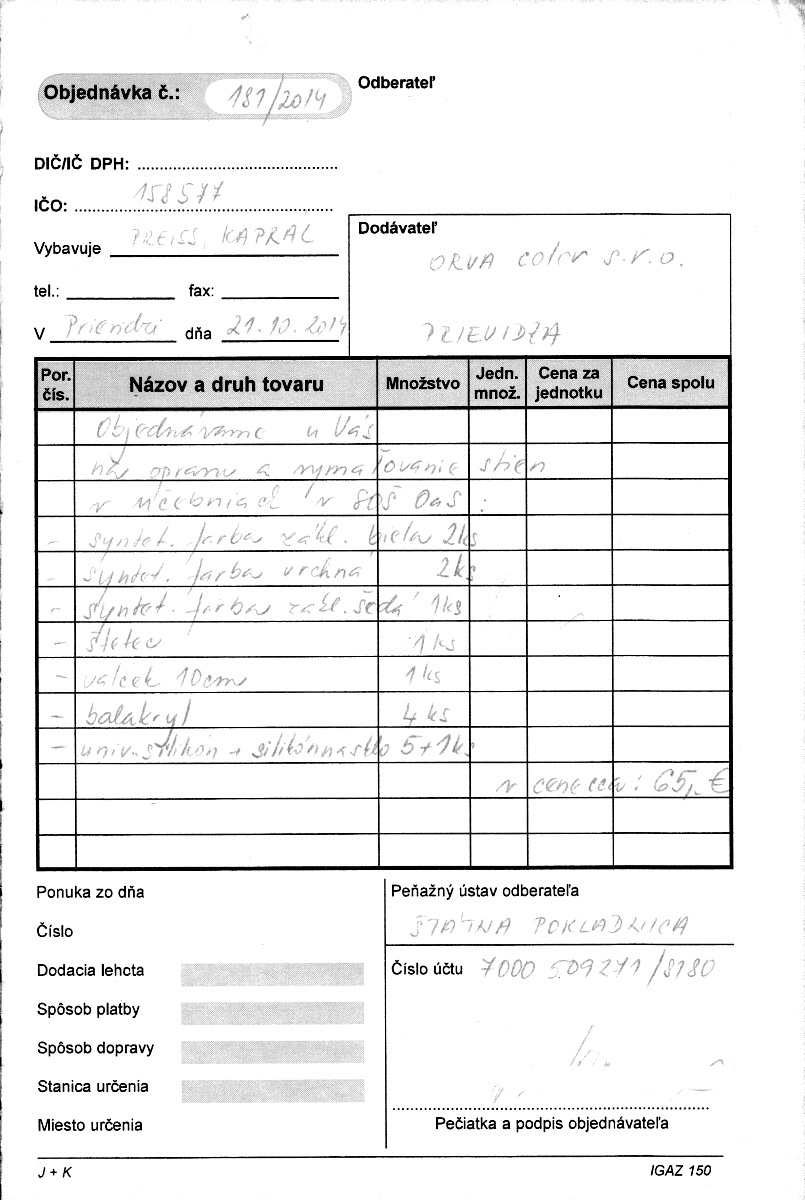 Objednávka č.: 181/2014
Odberateľ
DIČ/IČ DPH:
IČO: 158577
Vybavuje PREISS, KAPRAL
tel.: fax:
V Prievidzi dňa 21.10.2014
Dodávateľ
ORVA color s.r.o.
PRIEVIDZA
Por. čís. Názov a druh tovaru Množstvo Jedn. množ. Cena za jednotku Cena spolu
Objednávame u Vás
na opravu a vymaľovanie stien
v učebniach v SOŠ OaS :
- syntet. farba zákl. biela 2ks
- syntet. farba vrchná 2ks
- syntet. farba zákl. šedá 1ks
- štetec 1ks
- valcek 10cm 1ks
- balakryl 4 ks
- univ. silikón + silikón na sklo 5+1ks
v cene cca: 65,- €
Ponuka zo dňa
Číslo
Dodacia lehota
Spôsob platby
Spôsob dopravy
Stanica určenia
Miesto určenia
Peňažný ústav odberateľa
ŠTÁTNA POKLADNICA
Číslo účtu 7000 509271/8180
Pečiatka a podpis objednávateľa
J + K
IGAZ 150